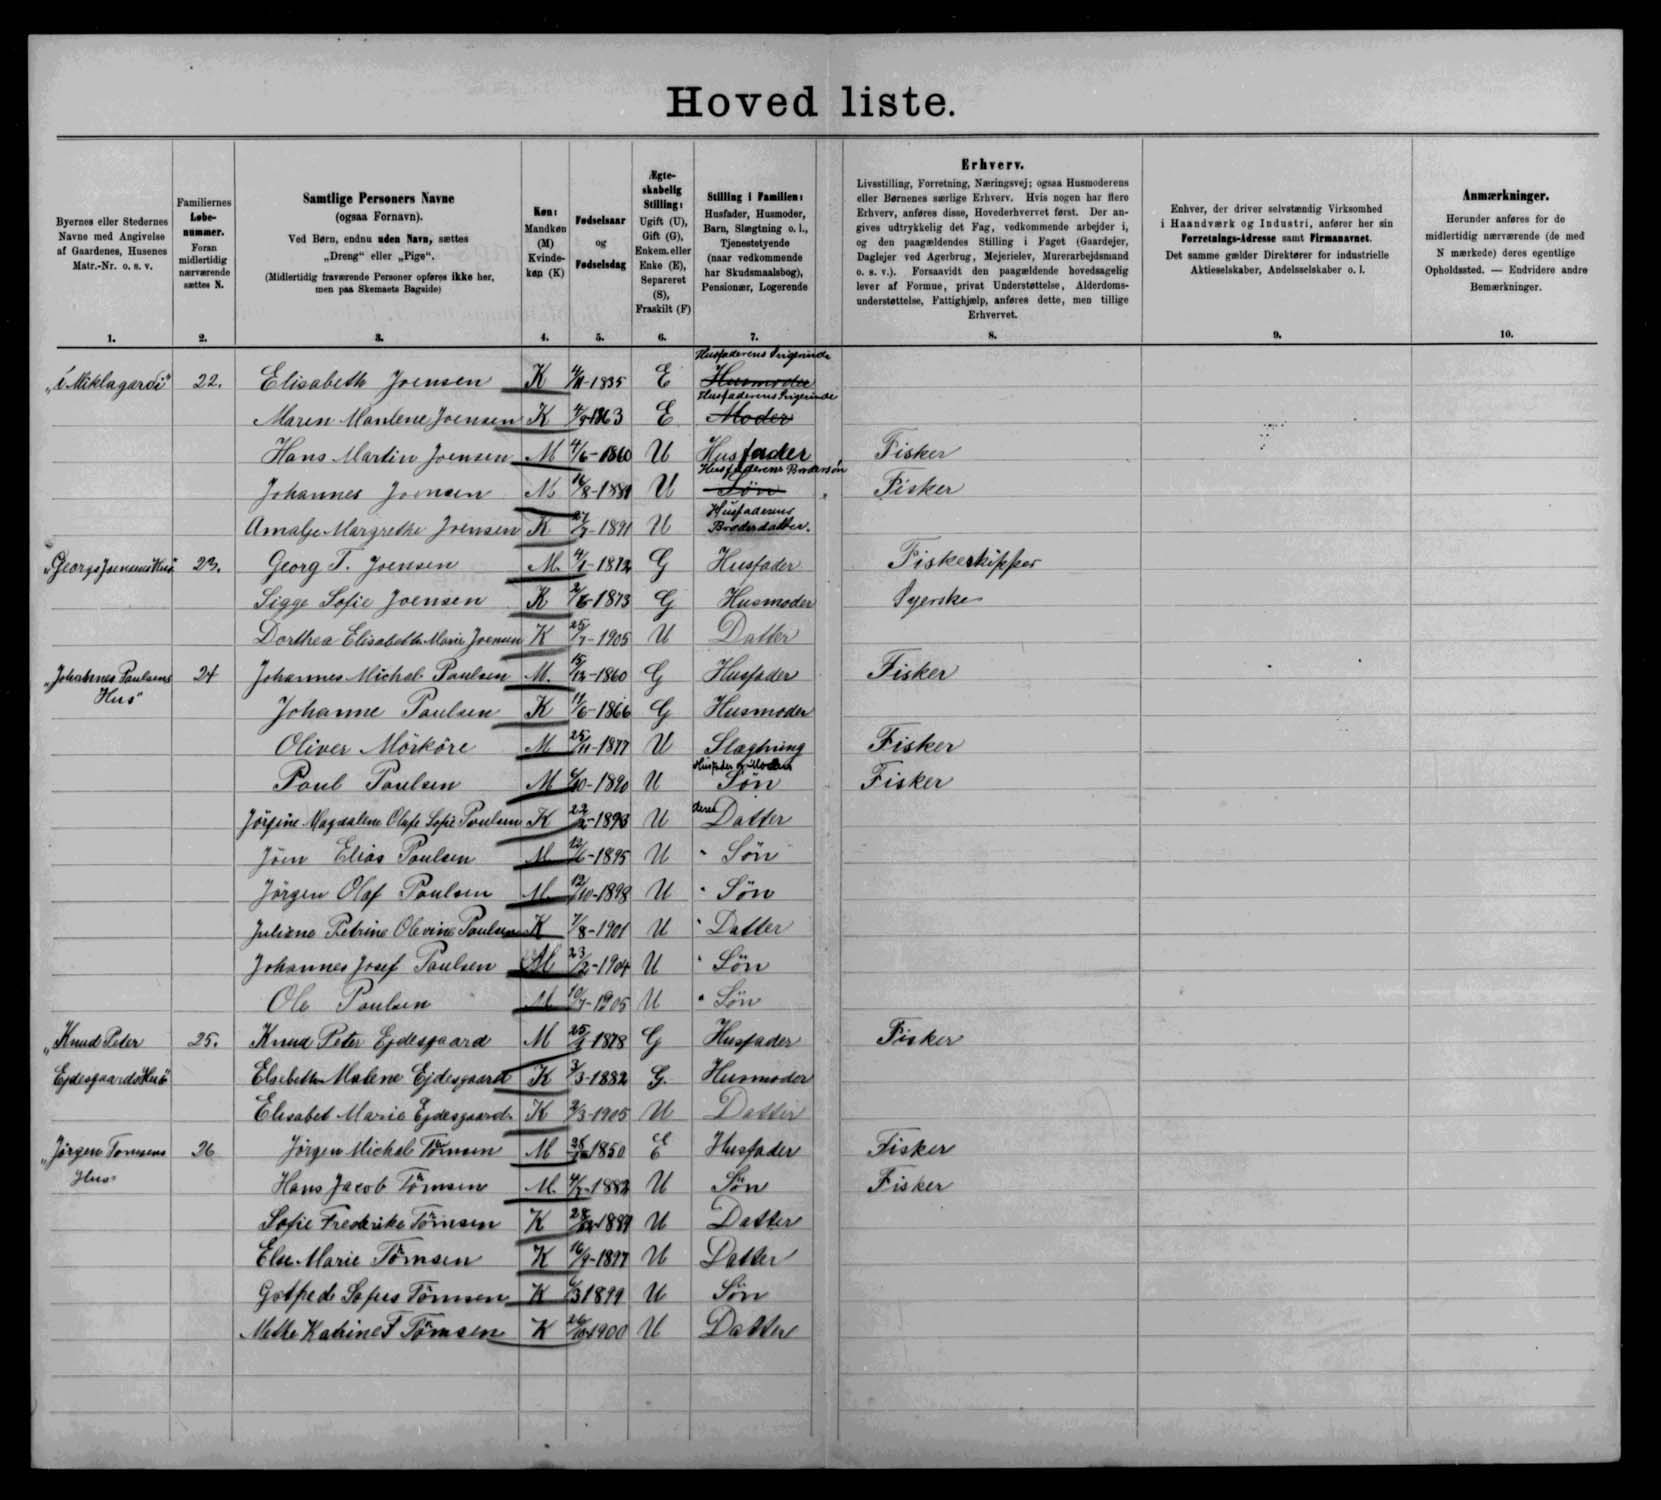 Hoved liste.
Byernes eller Stedernes
Navne med Angivelse
af Gaardenes, Husenes
Matr.-Nr. o. s. v.
1.
Familiernes
Løbe-
nummer.
Foran
midlertidig
nærværende
sættes N.
2.
Samtlige Personers Navne
(ogsaa Fornavn).
Ved Børn, endnu uden Navn, sættes
„Dreng“ eller „Pige“.
(Midlertidig fraværende Personer opføres ikke her,
men paa Skemaets Bagside)
3.
Køn:
Mandkøn
(M)
Kvinde-
køn (K)
4.
Fødselsaar
og
Fødselsdag
5.
Ægte-
skabelig
Stilling:
Ugift (U),
Gift (G),
Enkem. eller
Enke (E),
Separeret
(S),
Fraskilt (F)
6.
Stilling i Familien:
Husfader, Husmoder,
Barn, Slægtning o. l.,
Tjenestetyende
(naar vedkommende
har Skudsmaalsbog),
Pensionær, Logerende
7.
Erhverv.
Livsstilling, Forretning, Næringsvej; ogsaa Husmoderens
eller Børnenes særlige Erhverv. Hvis nogen har flere
Erhverv, anføres disse, Hovederhvervet først. Der an-
gives udtrykkelig det Fag, vedkommende arbejder i,
og den paagældendes Stilling i Faget (Gaardejer,
Daglejer ved Agerbrug, Mejerielev, Murerarbejdsmand
o. s. v.). Forsaavidt den paagældende hovedsagelig
lever af Formue, privat Understøttelse, Alderdoms-
understøttelse, Fattighjælp, anføres dette, men tillige
Erhvervet.
8.
Enhver, der driver selvstændig Virksomhed
i Haandværk og Industri, anfører her sin
Forretnings-Adresse samt Firmanavnet.
Det samme gælder Direktører for industrielle
Aktieselskaber, Andelsselskaber o. l.
9.
Anmærkninger.
Herunder anføres for de
midlertidig nærværende (de med
N mærkede) deres egentlige
Opholdssted. — Endvidere andre
Bemærkninger.
10.
Husfaderens
„í Miklagardi“ 22. Elisabeth Joensen K 1835 E Husmoder
Husfaderens
Maren Joensen K 1863 E Moder
Hans Martin Joensen M 4/6-1860 U Husfader Fisker
Husfaderens Brodersøn
Johannes Joensen M 16/8-1881 U Søn Fisker
Husfaderens
Amalje Margrethe Joensen K 1891 U Broderdatter.
„Georgs Joensens Hus“ 23. Georg T. Joensen M. 4/1-1872 G Husfader Fiskeskipper
Sigge Sofie Joensen K 1873 G Husmoder Syerske
Dorthea Elisabeth Marie Joensen K 25/7-1905 U Datter
„Johannes Paulsens 24 Johannes Michal Paulsen M. 15/12-1860 G Husfader Fisker
Hus“ Johanne Paulsen K 11/6-1866 G Husmoder
Oliver Mörköre M 25/11-1877 U Slægtning Fisker
Husfader og Moder
Paul Paulsen M 1890 U Søn Fisker
Jörgine Magdalene Olafe Sofie Paulsen K 22/2-1893 U deres Datter
Jóen Elias Paulsen M 12/6-1895 U " Søn
Jörgen Olaf Paulsen M. 12/10-1898 U " Søn
Juliane Petrine Olevine Paulsen K 7/8-1901 U " Datter
Johannes Josef Paulsen M 23/2-1904 U " Søn
Ole Paulsen M 10/7-1905 U " Søn
„Knud Peter 25. Knud Peter Ejdesgaard M 1878 G Husfader Fisker
Ejdesgaards Hus“ Elsebeth Malene Ejdesgaard K 3/3-1882 G. Husmoder
Elisabet Marie Ejdesgaard K 2/3-1905 U Datter
„Jørgen Tomsens 26 Jørgen Michal Tömsen M 1850 E Husfader Fisker
Hus“ Hans Jacob Tömsen M. 1882 U Søn Fisker
Sofie Frederike Tömsen K 1889 U Datter
Else Marie Tömsen K 16/9-1897 U Datter
Gotfrede Sofus Tömsen K 1899 U Søn
Mette Katrine F Tömsen K 1900 U Datter